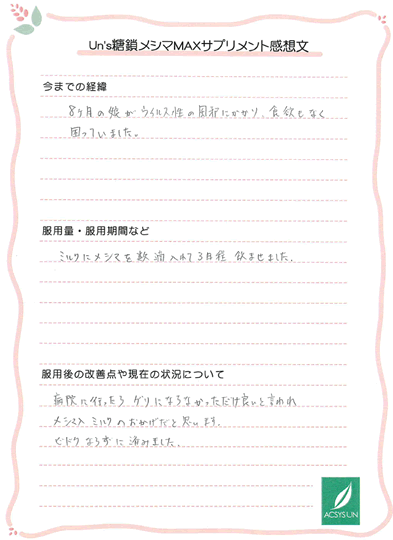 Un's糖鎖メシマMAXサプリメント感想文
今までの経緯
8ヶ月の娘がウイルス性の風邪にかかり、食欲もなく
困っていました。
服用量・服用期間など
ミルクにメシマを数滴入れて3日程飲ませました。
服用後の改善点や現在の状況について
病院に行ったらゲリにならなかっただけ良いと言われ
メシマ入ミルクのおかげだと思います。
ヒドクならずに済みました。
ACSYSUN